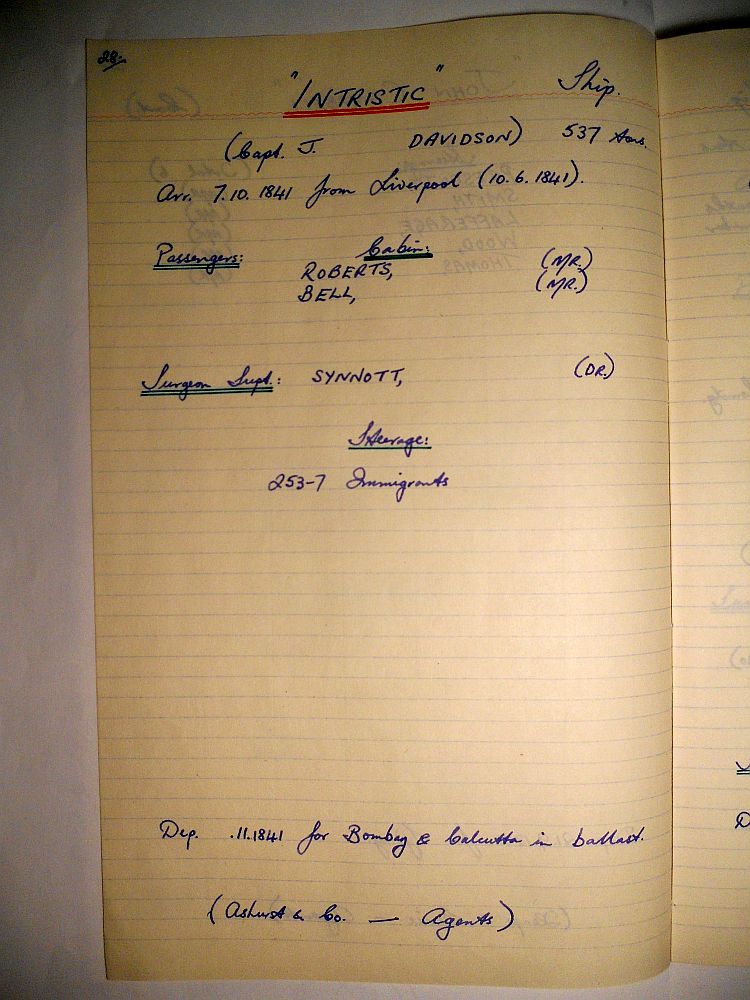 28.
"INTRISTIC" Ship.
(Capt. J. DAVIDSON) 537 tons.
Arr. 7.10.1841 from Liverpool (10.6.1841).
Passengers: Cabin:
ROBERTS, (MR.)
BELL, (MR.)
Surgeon Supt.: SYNNOTT, (DR.)
Steerage:
253-7 Immigrants
Dep. .11.1841 for Bombay & Calcutta in ballast.
(Ashurst & Co. — Agents)